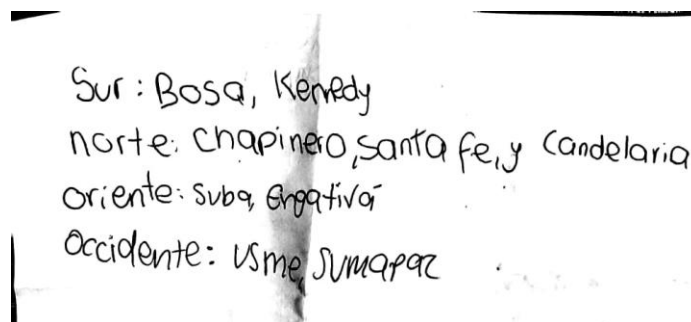 Sur: Bosa, Kennedy
norte: Chapinero, Santa fe, y Candelaria
oriente: Suba, Engativá
Occidente: Usme, Sumapaz